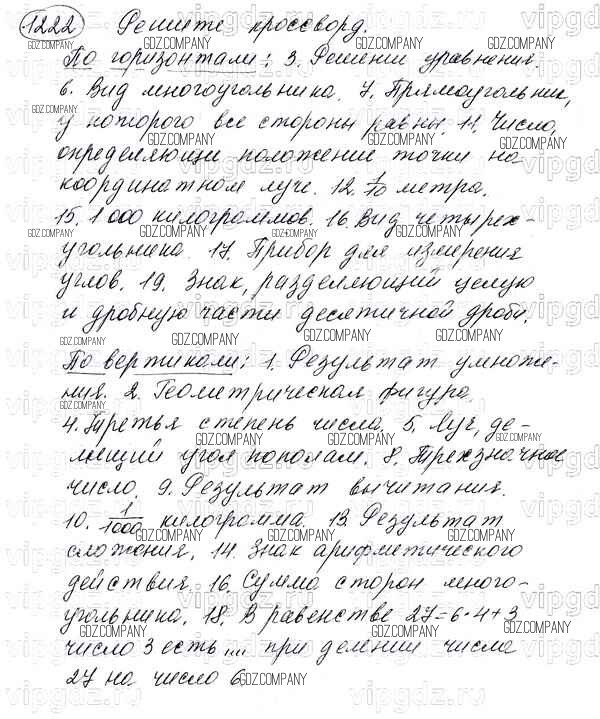 1222 Решите кроссворд.
По горизонтали: 3. Решении уравнения.
6. Вид многоугольника. 7. Прямоугольник,
у которого все стороны равны. 11. Число,
определяющи положение точки на
координатном луче. 12. 1/10 метра.
15. 1 000 килограммов. 16. Вид четырех-
угольника. 17. Прибор для измерения
углов. 19. Знак, разделяющий целую
и дробную части десятичной дроби.
По вертикали: 1. Результат умноже-
ния. 2. Геометрическая фигура.
4. Третья степень числа. 5. Луч, де-
лющий угол пополам. 8. Трехзначное
число. 9. Результат вычитания.
10. 1/1000 килограмма. 13. Результат
сложения. 14. Знак арифметического
действия. 16. Сумма сторон много-
угольника. 18. В равенстве 27=6·4+3
число 3 есть .... при делении числа
27 на число 6